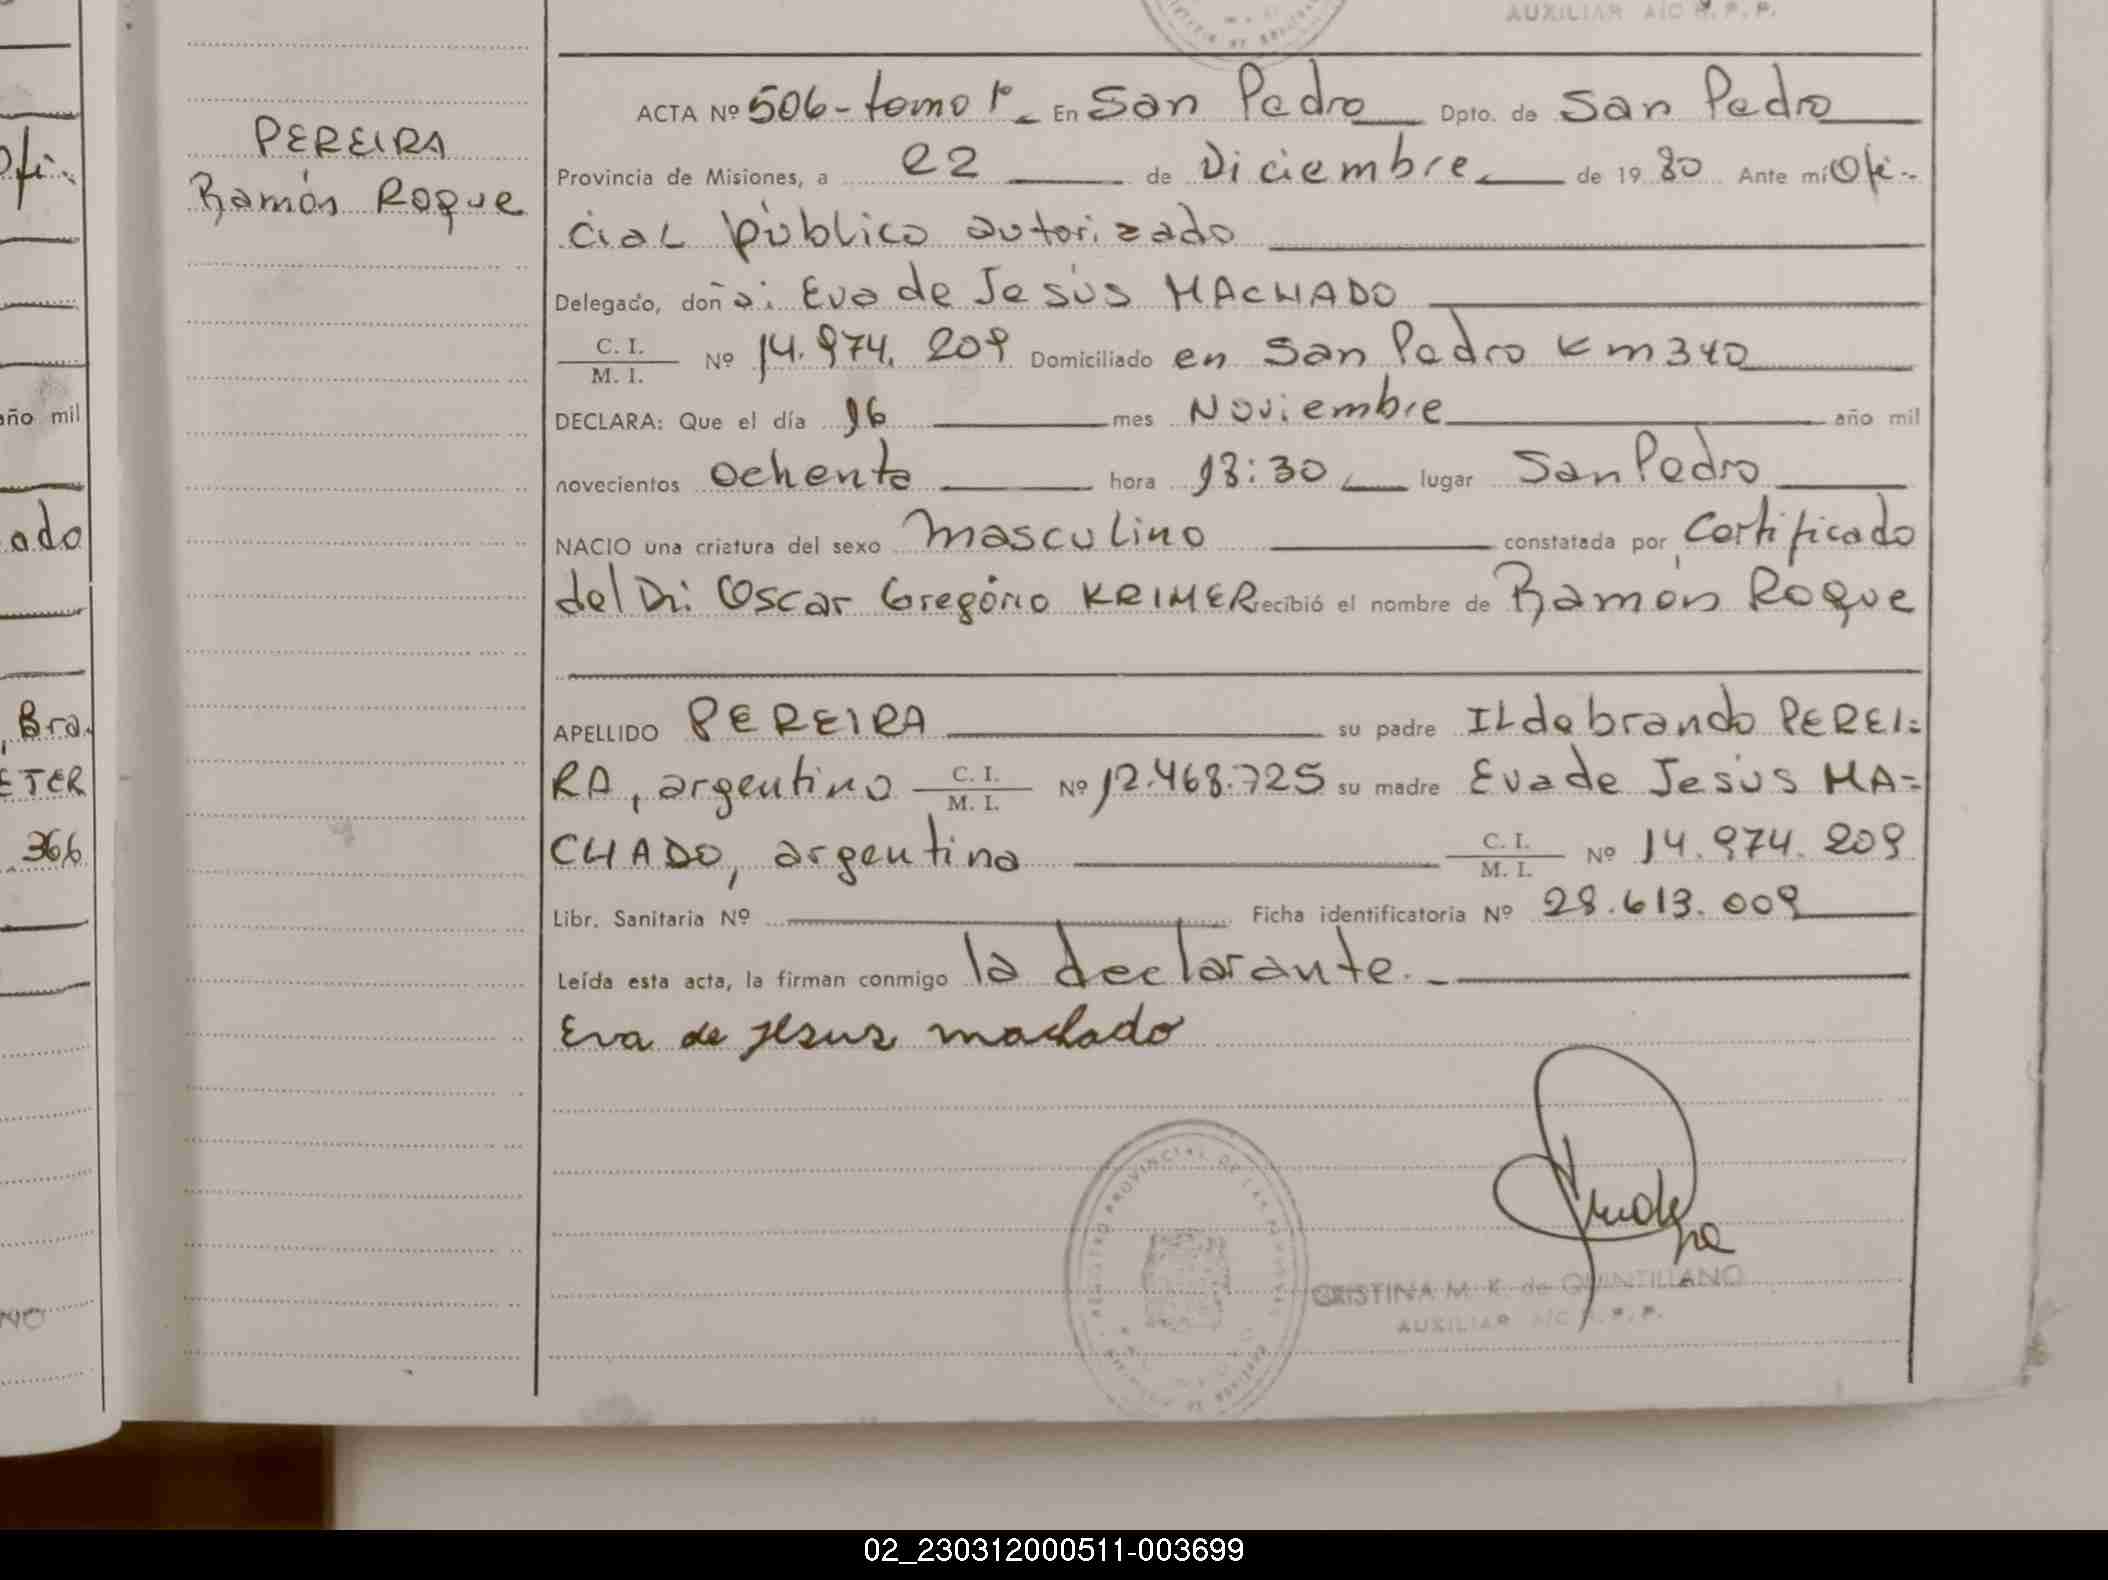 AUXILIAR A/C R.P.P.
PEREIRA
Ramón Roque
ACTA Nº 506-tomo 1º En San Pedro Dpto. de San Pedro
Provincia de Misiones, a 22 de Diciembre de 1980 Ante mi Ofi-
cial público autorizado
Delegado, doña: Eva de Jesús MACHADO
C. I.
M. I. Nº 14.974.209 Domiciliado en San Pedro Km 340
DECLARA: Que el día 16 mes Noviembre año mil
novecientos ochenta hora 18:30 lugar San Pedro
NACIO una criatura del sexo masculino constatada por Certificado
del Dr: Oscar Gregório KRIMER recibió el nombre de Ramón Roque
APELLIDO PEREIRA su padre ILdebrando PEREI=
RA, argentino C. I. M. I. Nº 12.468.725 su madre Eva de Jesús MA=
CHADO, argentina C. I. M. I. Nº 14.974.209
Libr. Sanitaria Nº Ficha identificatoria Nº 28.613.009
Leída esta acta, la firman conmigo la declarante.-
Eva de Jesus machado
REGISTRO PROVINCIAL DE LAS PERSONAS
CRISTINA M. K. de QUINTILIANO
AUXILIAR A/C R.P.P.
Ofi-
año mil
ado
, Bra.
ETER
366
NO
02_230312000511-003699